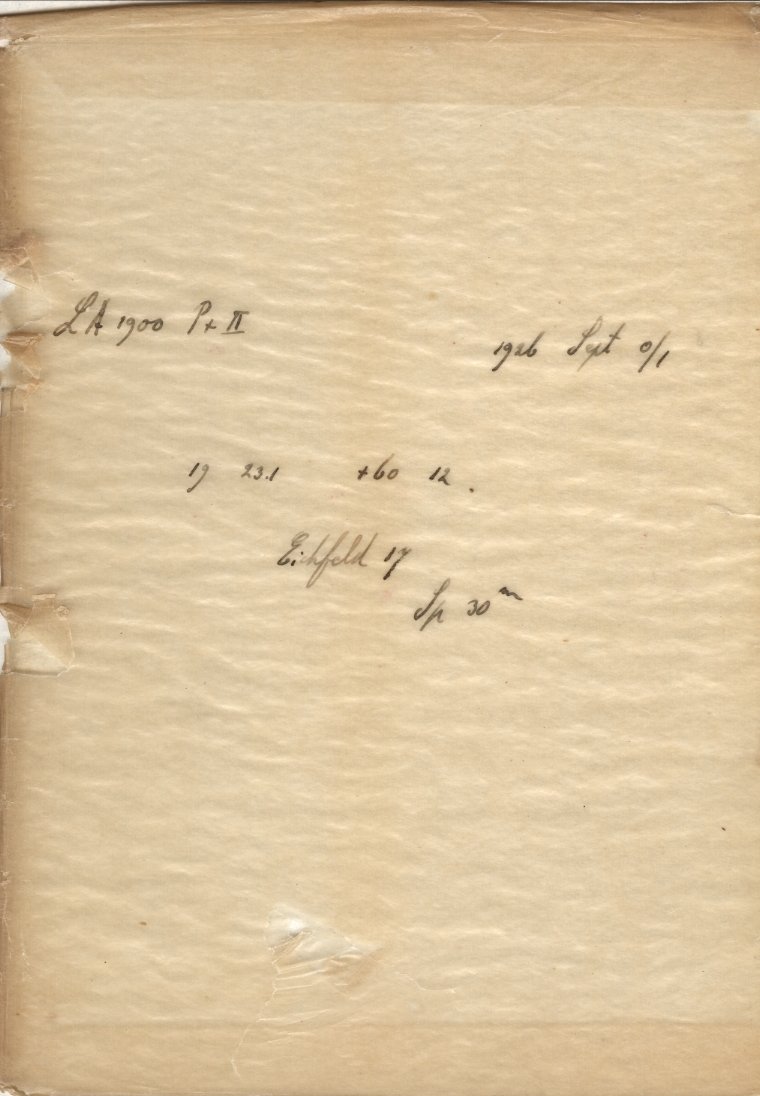 LA 1900 Pl II
1926 Sept 0/1
19 23.1 +60 12.
Eichfeld 17
Sp 30m